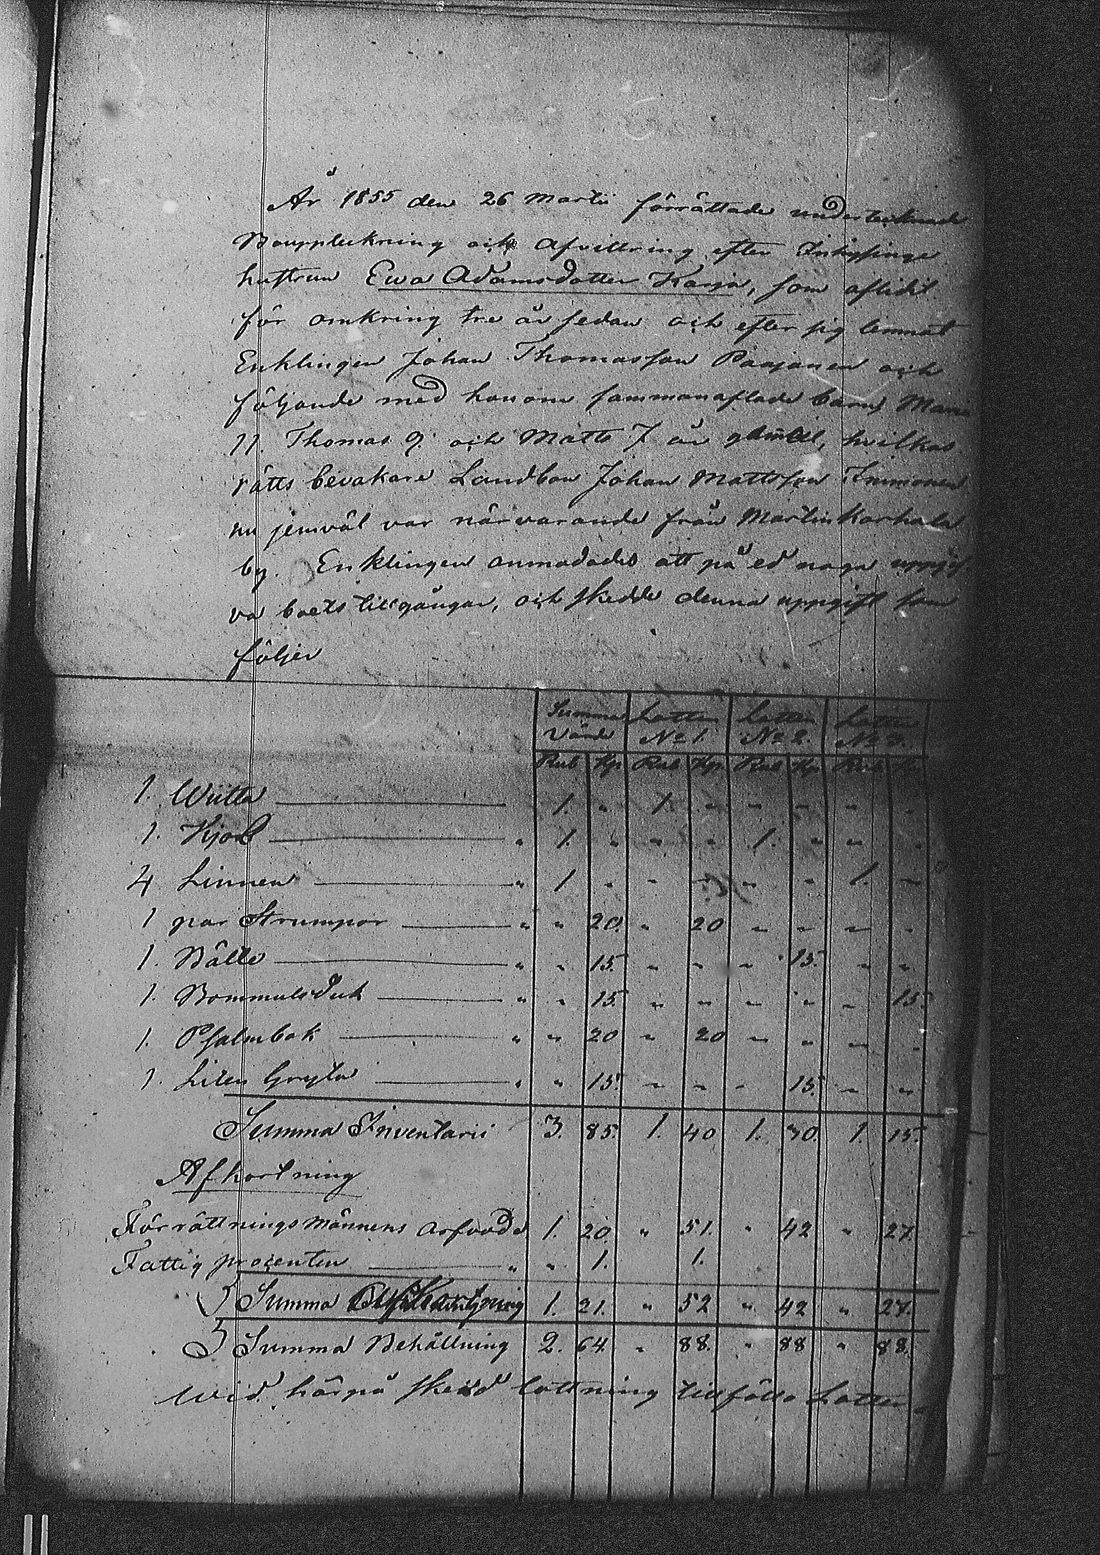 År 1855 den 26 Martii förrättade undertecknade
Bouppteckning och Afvittring efter Inhysinge
hustrun Ewa Adamsdotter Karja, som aflidit
för omkring tre år sedan och efter sig lemnat
Enklingen Johan Thomasson Paajanen och
följande med honom sammanaflade barn, Maria
11. Thomas 9 och Matts 7 år gamal, hvilkas
rätts bevakare Landbon Johan Mattsson Immonen
nu jemväl var närvarande från Martinkarhala
by. Enklingen anmodades att på ed noga uppgif
va boets tillgångar, och skedde denna uppgift som
följer
Summa Värde Lotten No 1. Lotten No 2. Lotten No 3.
Rub Kp Rub Kp Rub Kp Rub Kp
1. Wiitta 1. " 1. " " " " "
1. Kjol " 1. " " " 1. " " "
4 Linnen " 1 " " " " " 1. "
1 par Strumpor " " 20. " 20 " " " "
1. Bälte " " 15. " " " 15. " "
1. Bommulsduk " " 15. " " " " " 15.
1. Psalmbok " " 20 " 20 " " " "
1. Liten Gryta " " 15. " " " 15. " "
Summa Inventarii 3. 85. 1. 40 1. 30. 1. 15.
Afkortning
Förrättningsmännens arfvode 1. 20. " 51. " 42 " 27.
Fattig procenten " " 1. 1.
Summa 1. 21. " 52 " 42 " 27.
Summa Behållning 2. 64. " 88. " 88 " 88.
Wid härpå skedd lottning tillföllo Lotten